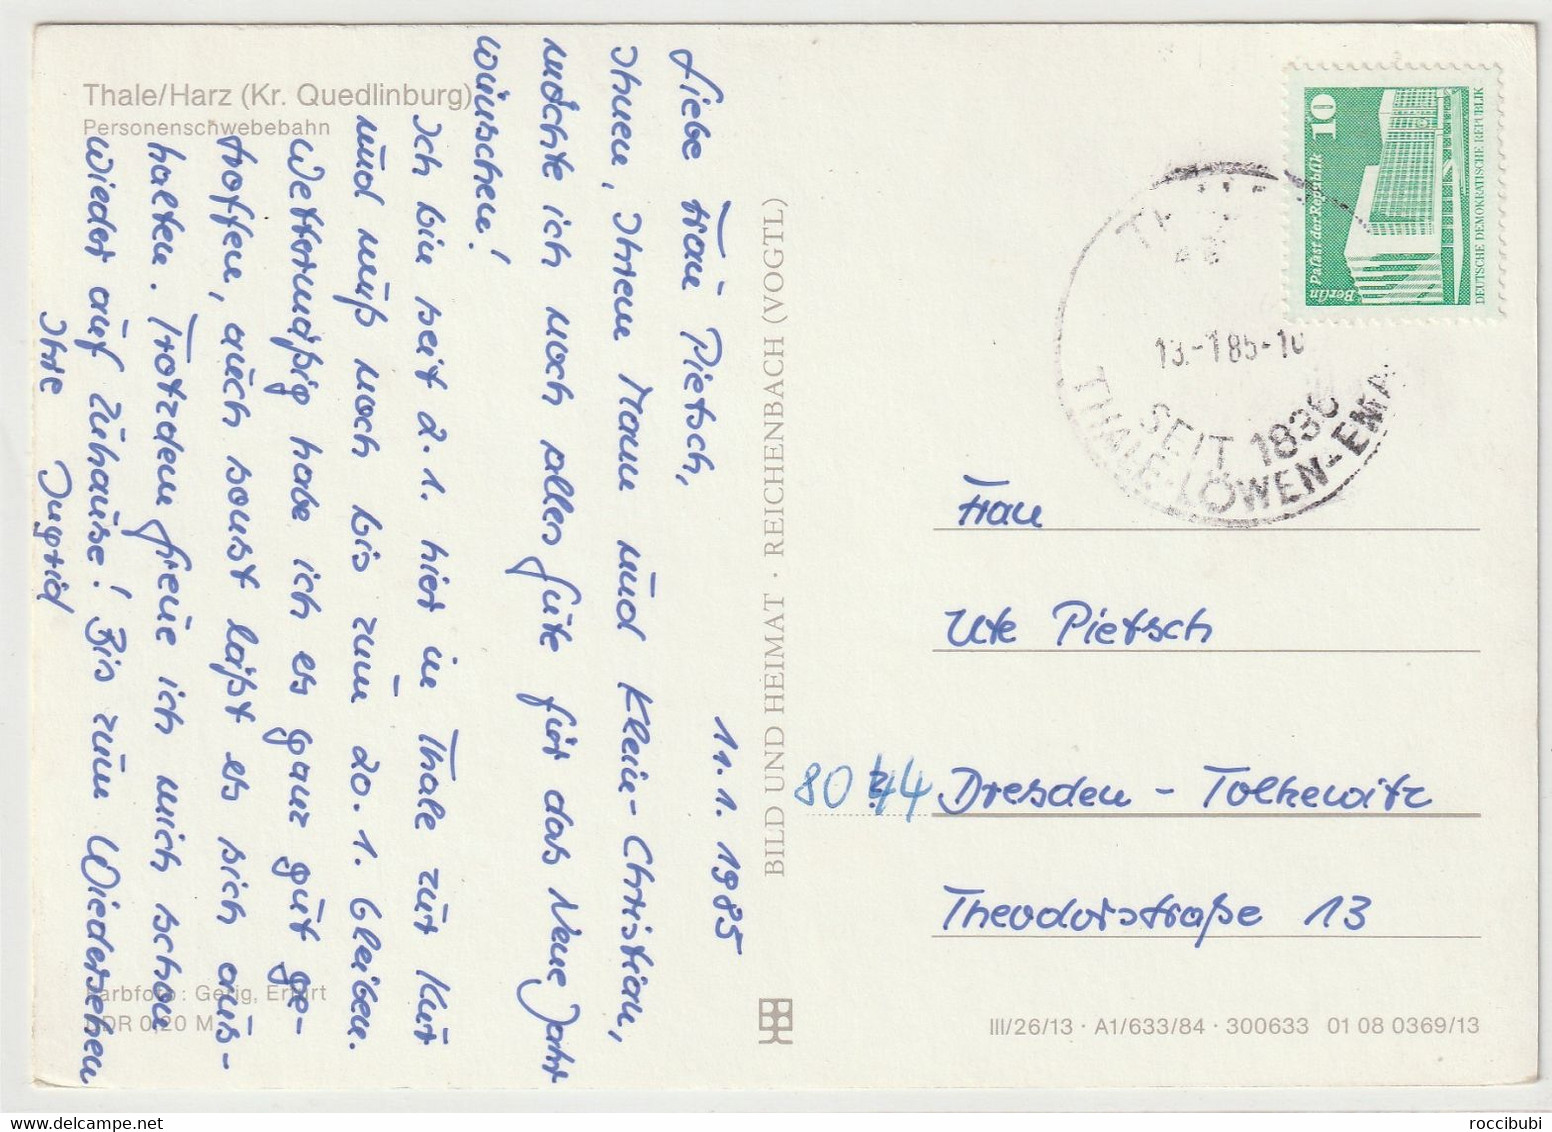 Thale/Harz (Kr. Quedlinburg)
Personenschwebebahn
11.1.1985
Liebe Frau Pietsch,
Ihnen, Ihrem Mann und Klein-Christian,
möchte ich noch alles Gute für das Neue Jahr
wünschen!
Ich bin seit 2.1. hier in Thale zur Kur
und muß noch bis zum 20.1. bleiben.
Wettermäßig habe ich es ganz gut ge-
troffen, auch sonst läßt es sich aus-
halten. Trotzdem freue ich mich schon
wieder auf zuhause! Bis zum Wiedersehen
Ihre Ingrid
Farbfoto: Gerig, Erfurt
DDR 0,20 M
BILD UND HEIMAT · REICHENBACH (VOGTL)
10
Palast der Republik
Berlin
DEUTSCHE DEMOKRATISCHE REPUBLIK
13.-1.85-10
SEIT 1836
THALE-LÖWEN-EMA
Frau
Ute Pietsch
8044 Dresden - Tolkewitz
Theodorstraße 13
III/26/13 · A1/633/84 · 300633 01 08 0369/13
roccibubi